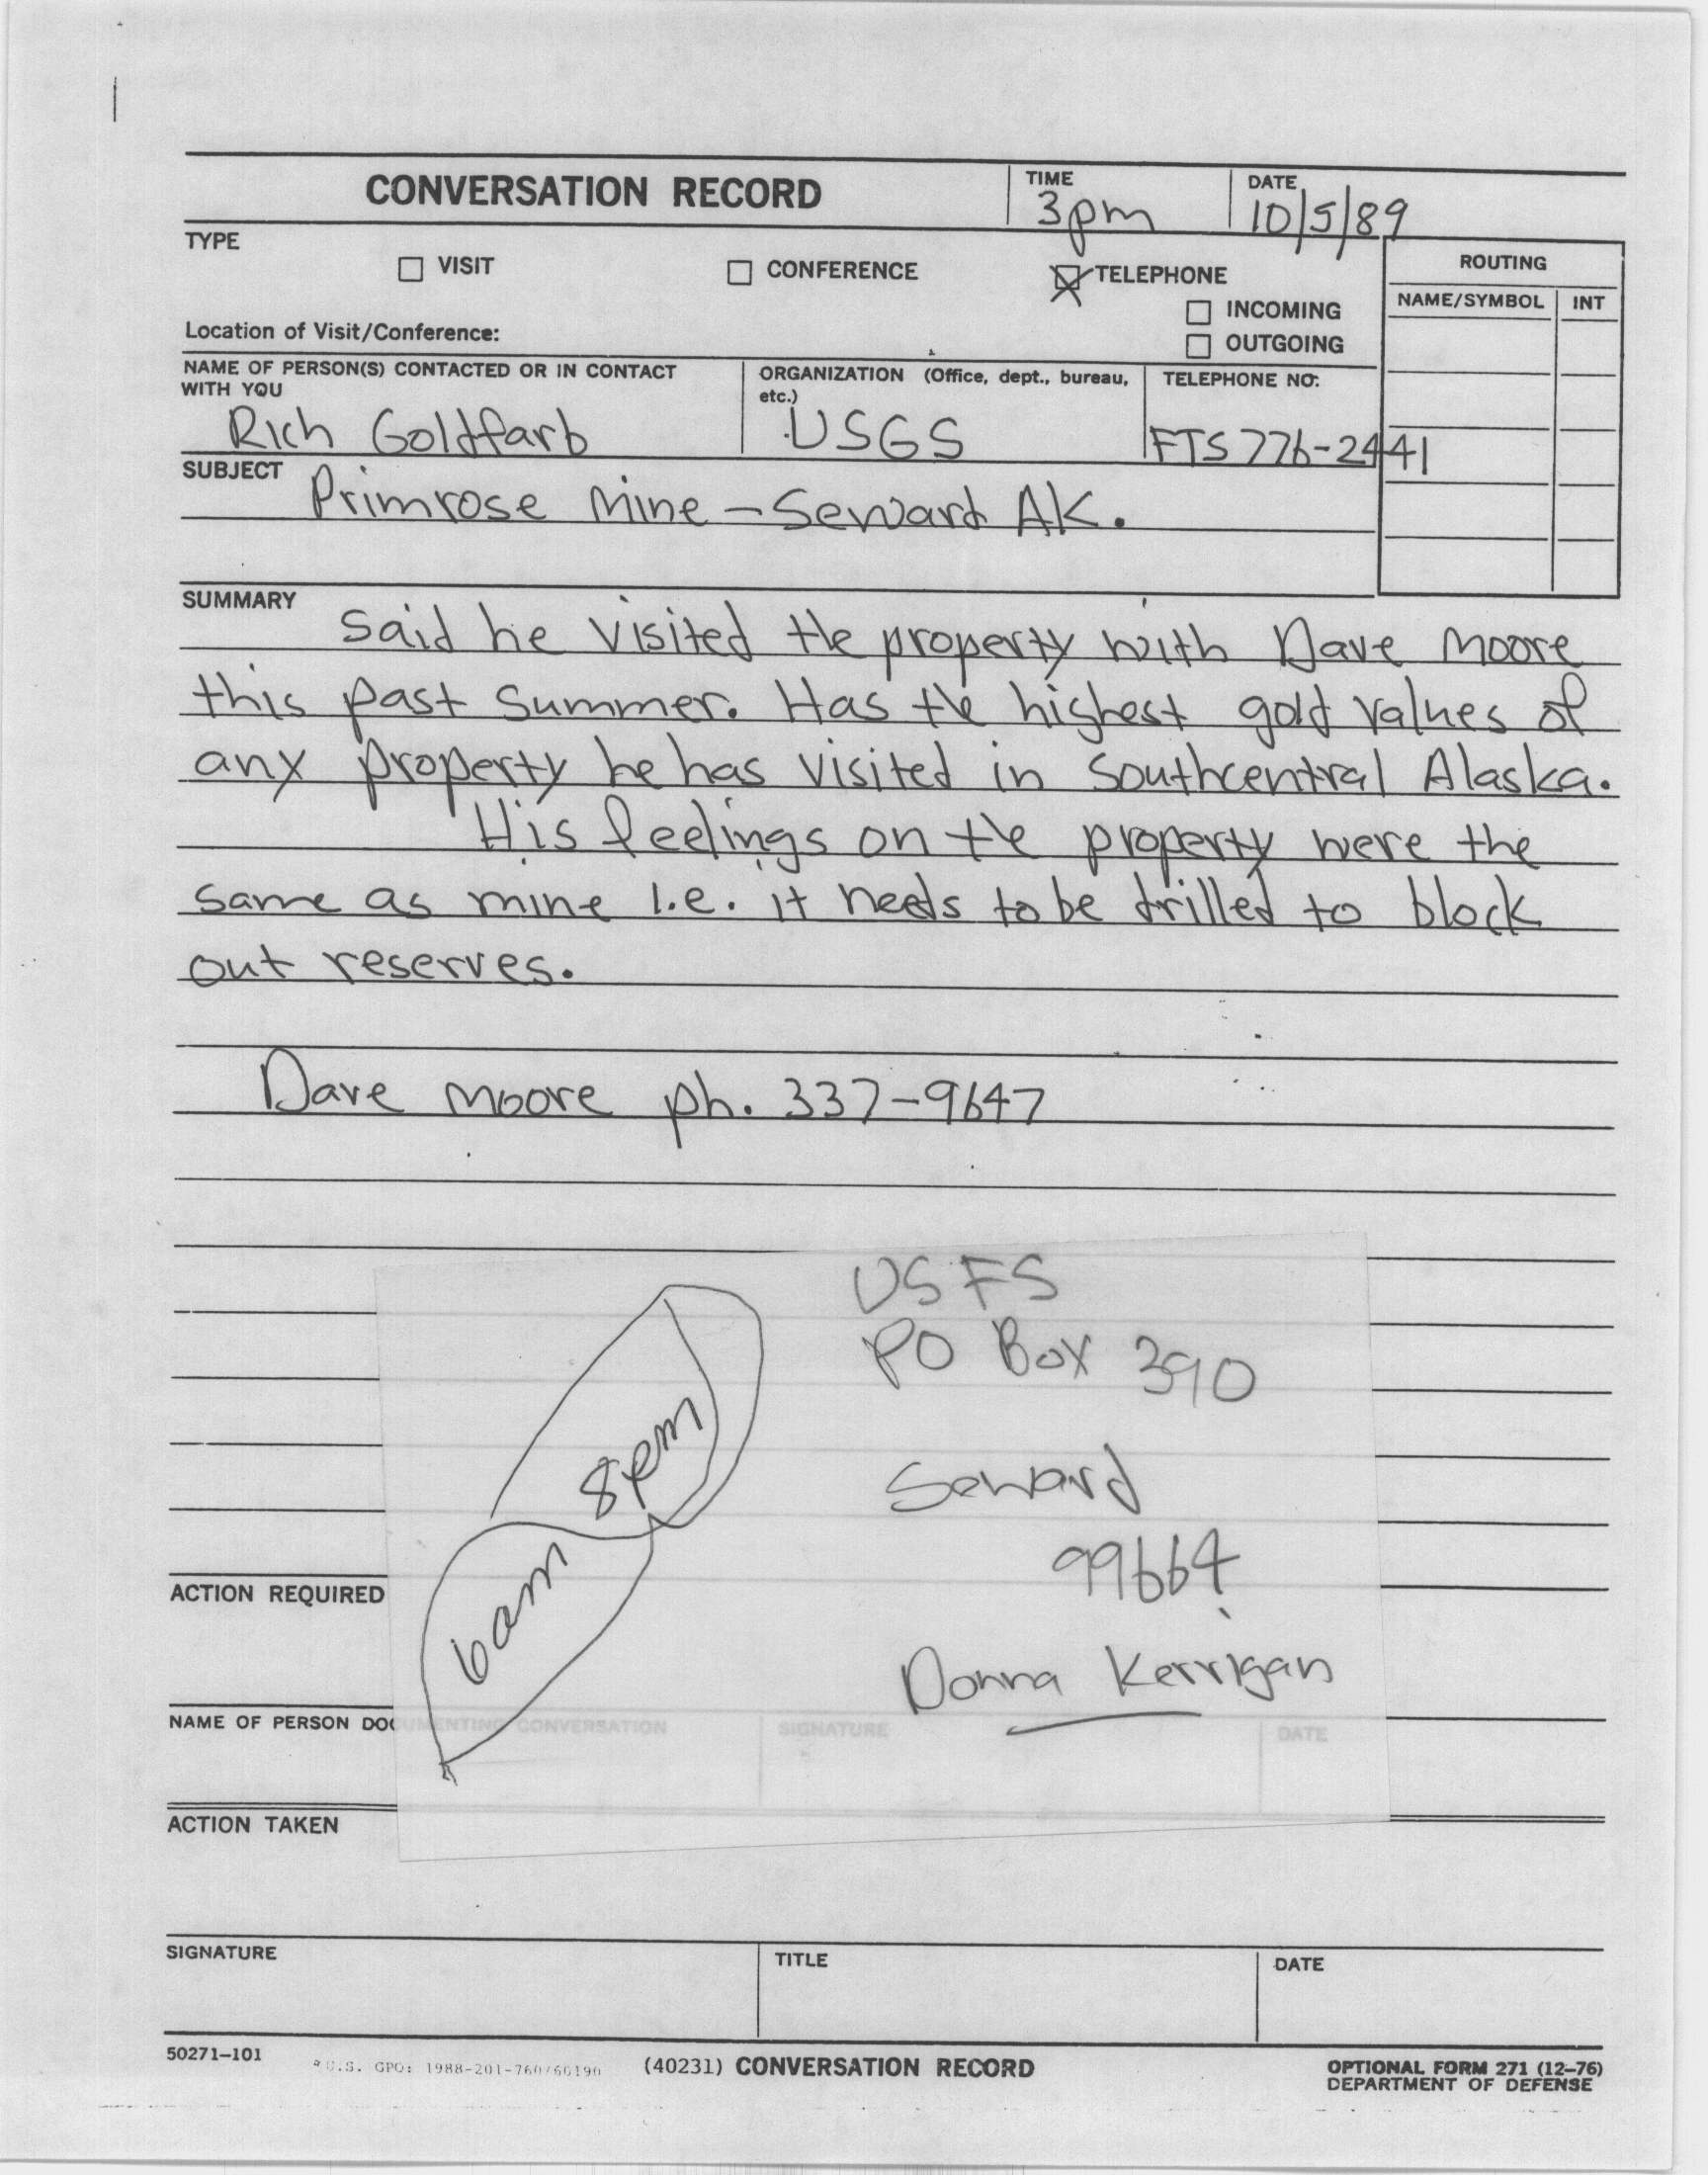 CONVERSATION RECORD
TIME
3pm
DATE
10/5/89
TYPE
VISIT
CONFERENCE
TELEPHONE
INCOMING
OUTGOING
ROUTING
NAME/SYMBOL INT
Location of Visit/Conference:
NAME OF PERSON(S) CONTACTED OR IN CONTACT
WITH YOU
Rich Goldfarb
ORGANIZATION (Office, dept., bureau,
etc.)
USGS
TELEPHONE NO:
FTS 776-2441
SUBJECT
Primrose Mine - Seward AK.
SUMMARY
Said he visited the property with Dave Moore
this past summer. Has the highest gold values of
any property he has visited in Southcentral Alaska.
His feelings on the property were the
same as mine i.e. it needs to be drilled to block
out reserves.
Dave Moore ph. 337-9647
USFS
PO Box 390
Seward
99664
Donna Kerrigan
8pm
6am
ACTION REQUIRED
NAME OF PERSON DOCUMENTING CONVERSATION
SIGNATURE
DATE
ACTION TAKEN
SIGNATURE
TITLE
DATE
50271-101
U.S. GPO: 1988-201-760/60190
(40231) CONVERSATION RECORD
OPTIONAL FORM 271 (12-76)
DEPARTMENT OF DEFENSE